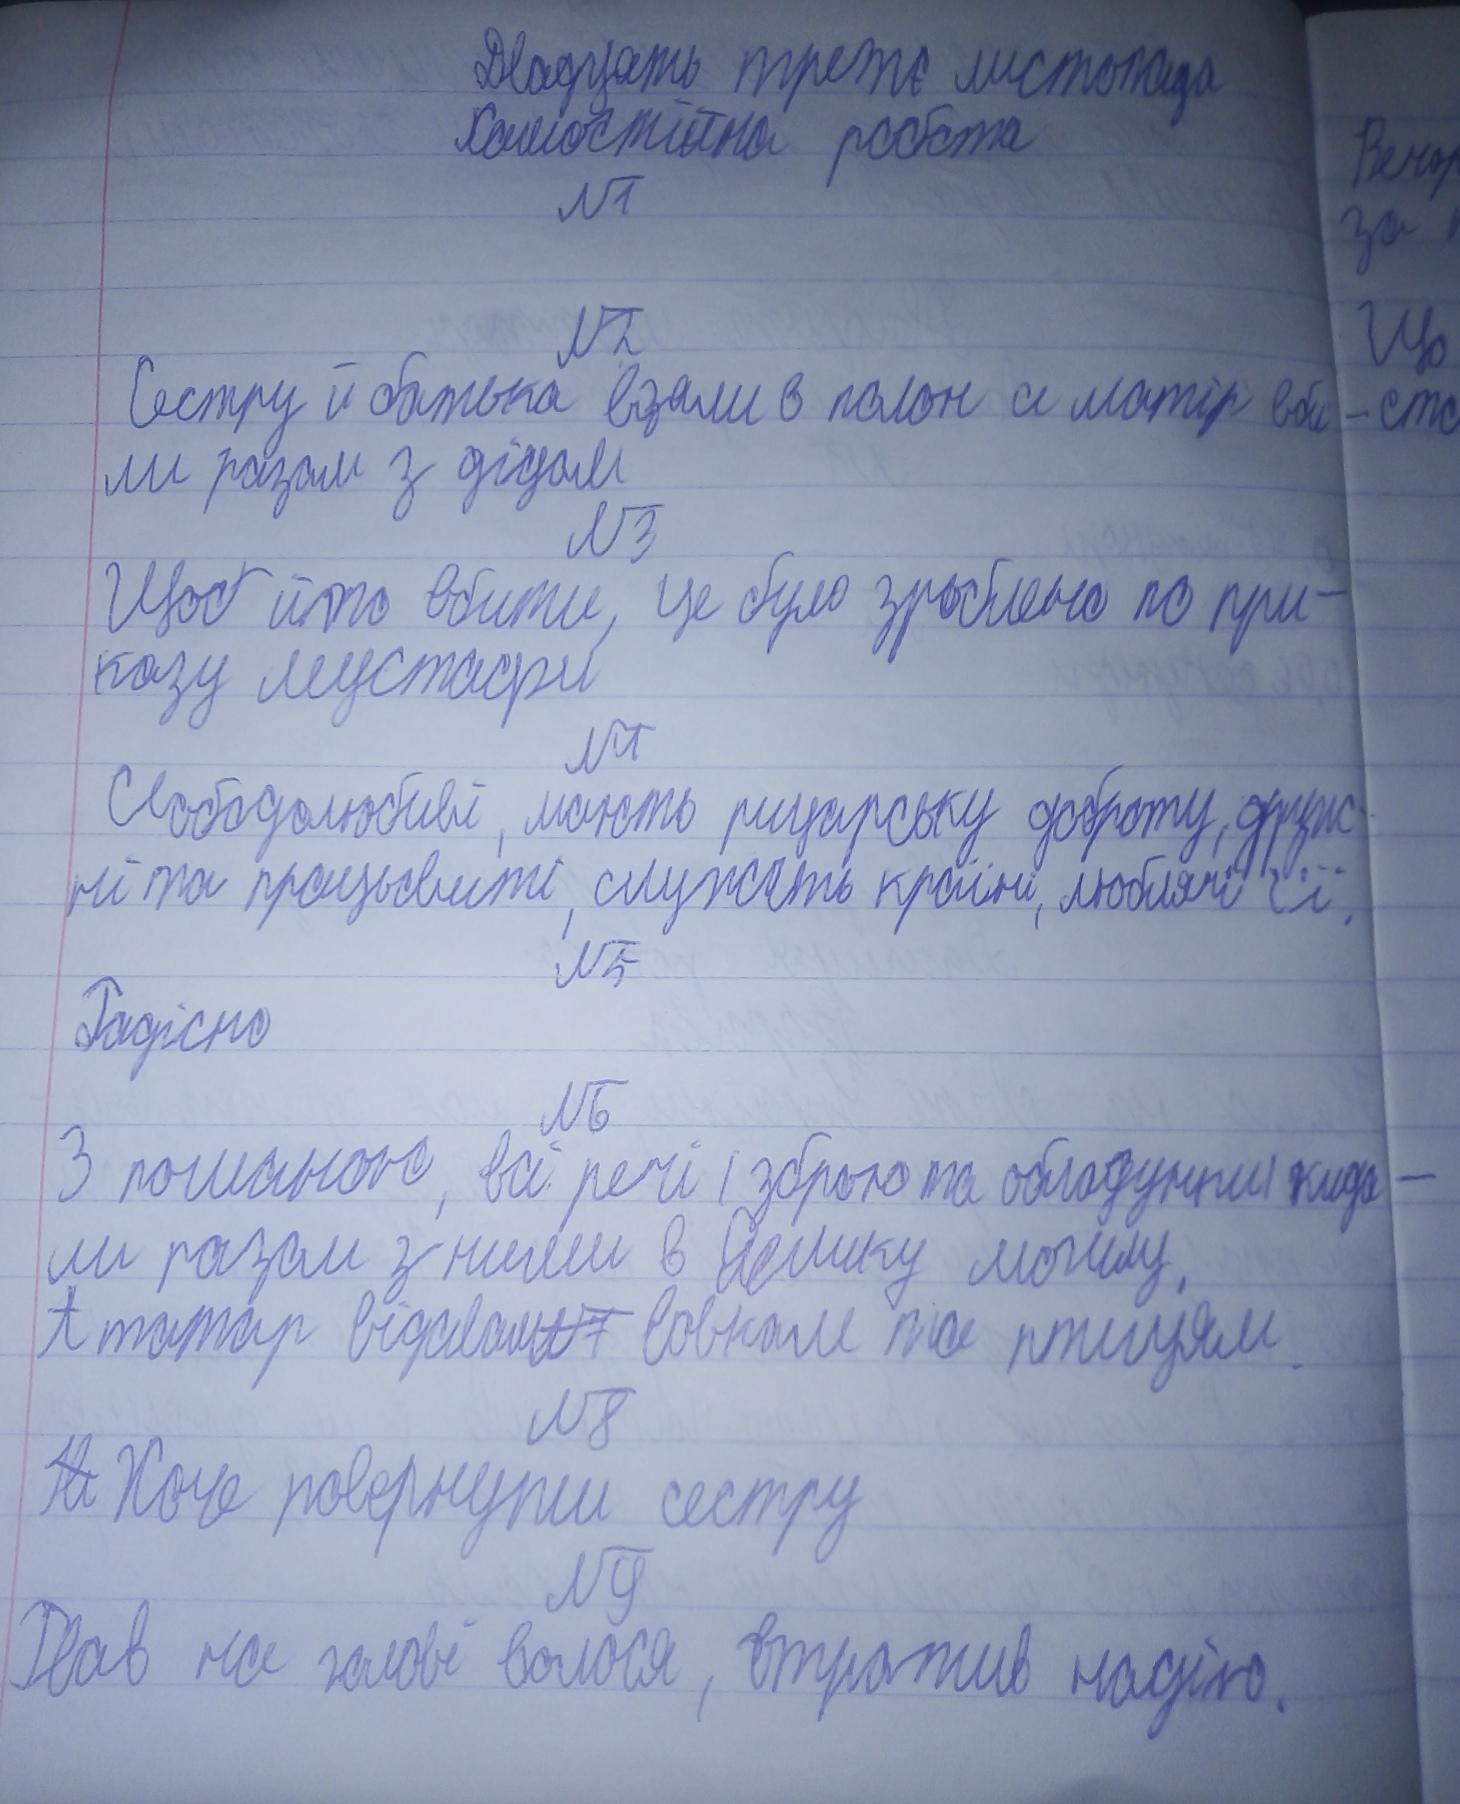 Двадцять третє листопада
Самостійна робота
№1
№2
Сестру й батька взяли в полон а матір вби-
ли разом з дідом
№3
Щоб його вбити, це було зроблено по при-
казу мустафи
№4
Свободолюбиві, мають рицарську доброту, друж-
ні та працьовиті, служать країні, люблячі її.
№5
Радісно
№6
З пошаною, всі речі (зброю та обладунки) кида-
ли разом з ними в велику могилу.
А татар віддавали вовкам та птицям.
№8
Хоче повернути сестру
№9
Рвав на голові волося, втратив надію.
Вечор
за
Що